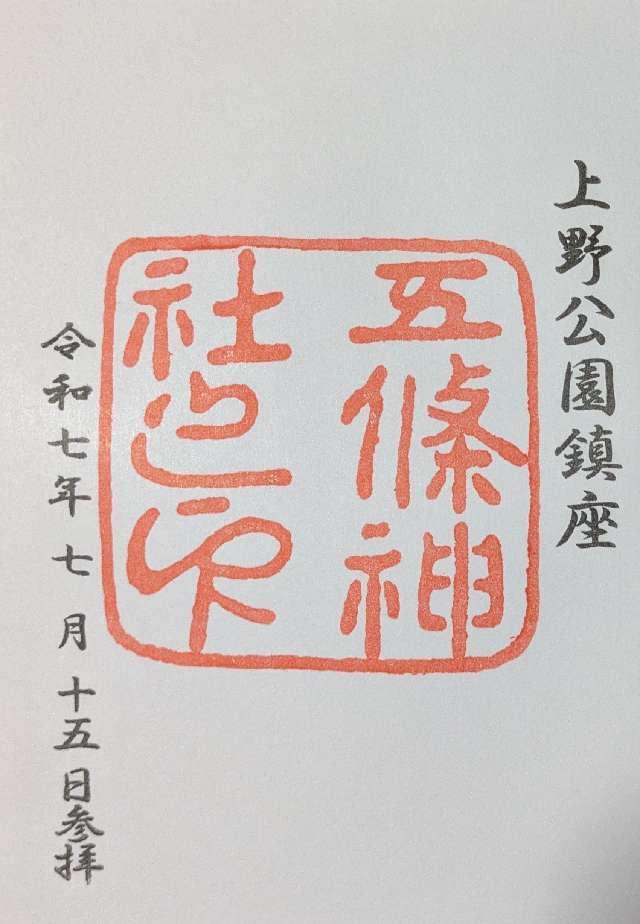 上野公園鎮座
五條神
社之印
令和七年七月十五日参拝